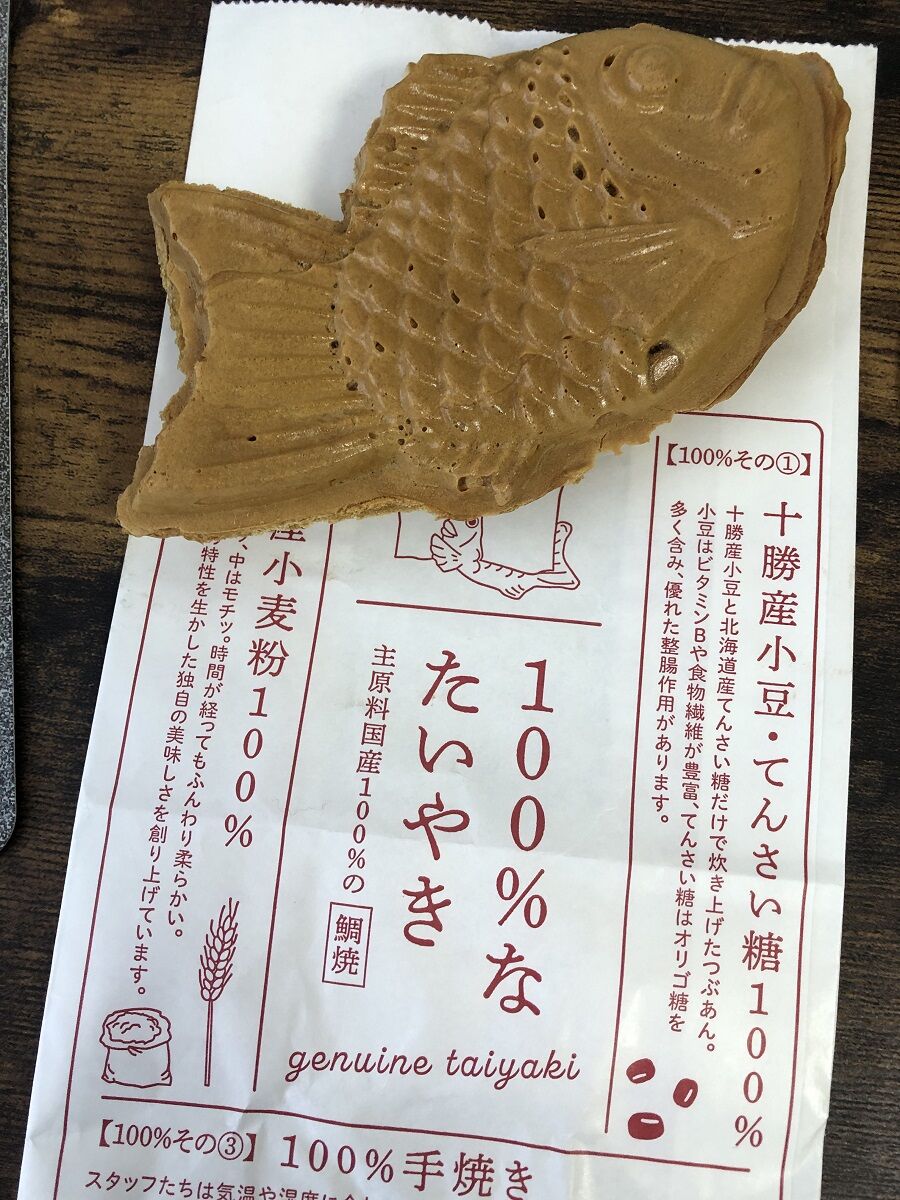 【100%その①】
十勝産小豆・てんさい糖100%
十勝産小豆と北海道産てんさい糖だけで炊き上げたつぶあん。
小豆はビタミンBや食物繊維が豊富、てんさい糖はオリゴ糖を
多く含み、優れた整腸作用があります。
100%な
たいやき
主原料国産100%の
鯛焼
genuine taiyaki
産小麦粉100%
、中はモチッ。時間が経ってもふんわり柔らかい。
特性を生かした独自の美味しさを創り上げています。
【100%その③】100%手焼き
スタッフたちは気温や湿度に合